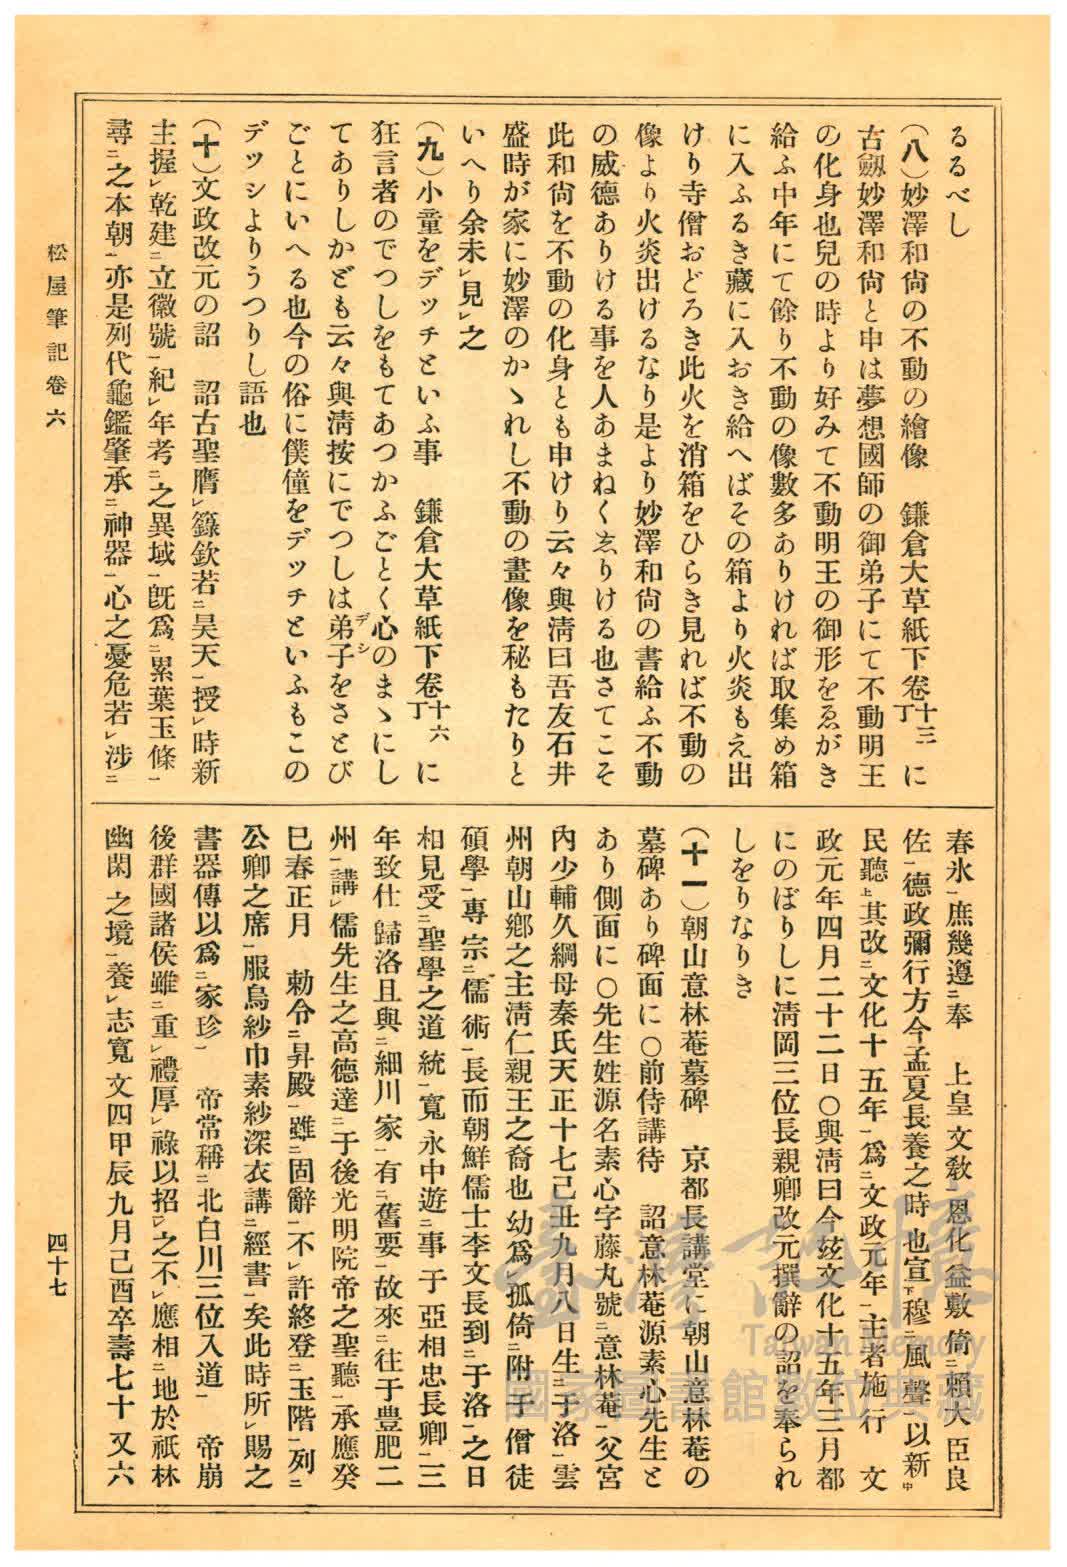 るるべし
（八）妙澤和尙の不動の繪像　鎌倉大草紙下卷十三丁に
古劔妙澤和尙と申は夢想國師の御弟子にて不動明王
の化身也兒の時より好みて不動明王の御形をゑがき
給ふ中年にて餘り不動の像數多ありければ取集め箱
に入ふるき藏に入おき給へばその箱より火炎もえ出
けり寺僧おどろき此火を消箱をひらき見れば不動の
像より火炎出けるなり是より妙澤和尙の書給ふ不動
の威德ありける事を人あまねくゑりける也さてこそ
此和尙を不動の化身とも申けり云々與淸曰吾友石井
盛時が家に妙澤のかゝれし不動の畫像を秘もたりと
いへり余未レ見レ之
（九）小童をデッチといふ事　鎌倉大草紙下卷十六丁に
狂言者のでつしをもてあつかふごとく心のまゝにし
てありしかども云々與淸按にでつしは弟子デシをさとび
ごとにいへる也今の俗に僕僮をデッチといふもこの
デッシよりうつりし語也
（十）文政改元の詔　詔古聖膺レ籙欽若ニ昊天一授レ時新
主握レ乾建ニ立徽號一紀レ年考ニ之異域一旣爲ニ累葉玉條一
尋ニ之本朝一亦是列代龜鑑肇承ニ神器一心之憂危若レ涉ニ
春氷一庶幾遵ニ奉　上皇文敎一恩化益敷倚ニ賴大臣良
佐一德政彌行方今孟夏長養之時也宣下穆ニ風聲一以新中
民聽上其改ニ文化十五年一爲ニ文政元年一主者施行　文
政元年四月二十二日〇與淸曰今玆文化十五年三月都
にのぼりしに淸岡三位長親卿改元撰辭の詔を奉られ
しをりなりき
（十一）朝山意林菴墓碑　京都長講堂に朝山意林菴の
墓碑あり碑面に〇前侍講待　詔意林菴源素心先生と
あり側面に〇先生姓源名素心字藤丸號ニ意林菴一父宮
內少輔久綱母秦氏天正十七己丑九月八日生ニ于洛一雲
州朝山鄕之主淸仁親王之裔也幼爲レ孤倚ニ附于僧徒
碩學一專宗ニ儒術一長而朝鮮儒士李文長到ニ于洛一之日
相見受ニ聖學之道統一寬永中遊ニ事于亞相忠長卿一三
年致仕歸洛且與ニ細川家一有ニ舊要一故來ニ往于豊肥二
州一講ニ儒先生之高德達ニ于後光明院帝之聖聽一承應癸
巳春正月　勅令ニ昇殿一雖ニ固辭一不レ許終登ニ玉階一列ニ
公卿之席一服烏紗巾素紗深衣講ニ經書一矣此時所レ賜之
書器傳以爲ニ家珍一　帝常稱ニ北白川三位入道一　帝崩
後群國諸侯雖ニ重レ禮厚レ祿以招一レ之不レ應相ニ地於祇林
幽閑之境一養レ志寬文四甲辰九月己酉卒壽七十又六
松屋筆記卷六
四十七
臺灣記憶
Taiwan Memory
國家圖書館數位典藏